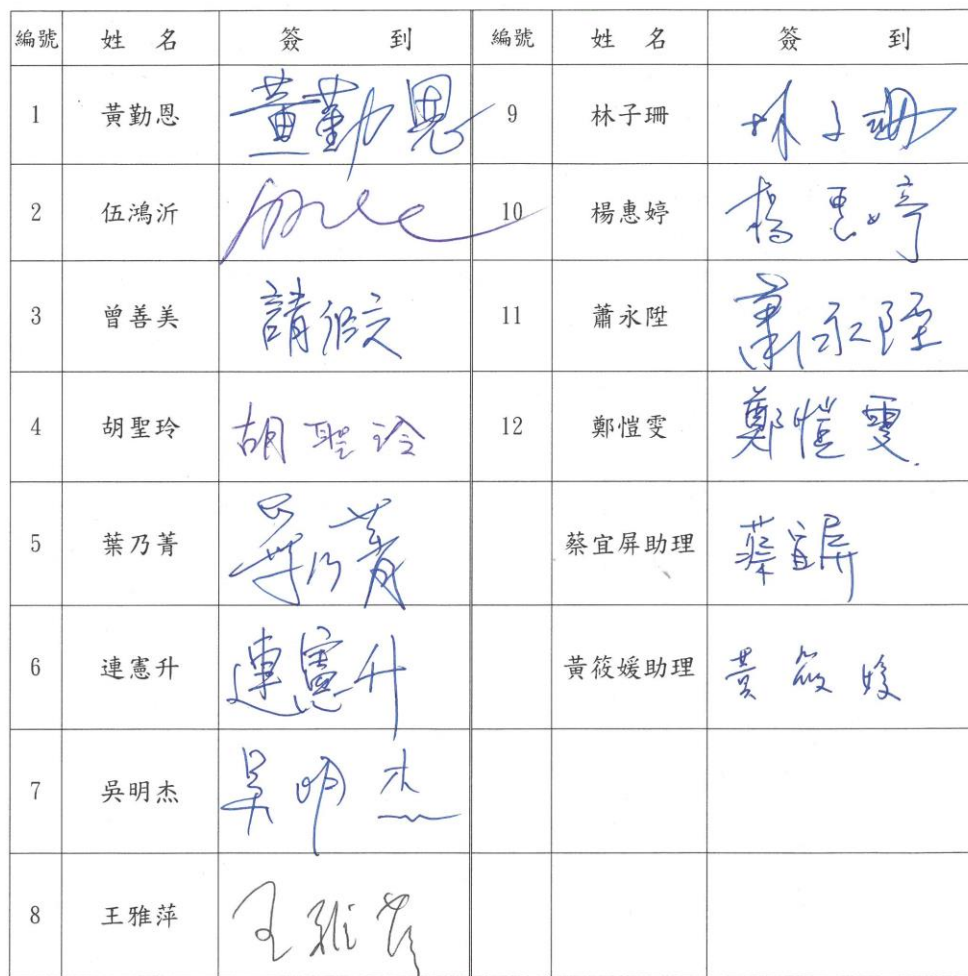 編號 姓名 簽到 編號 姓名 簽到
1 黃勤恩 黃勤恩 9 林子珊 林子珊
2 伍鴻沂 10 楊惠婷 楊惠婷
3 曾善美 請假 11 蕭永陞 蕭永陞
4 胡聖玲 胡聖玲 12 鄭愷雯 鄭愷雯
5 葉乃菁 葉乃菁 蔡宜屏助理 蔡宜屏
6 連憲升 連憲升 黃筱媛助理 黃筱媛
7 吳明杰 吳明杰
8 王雅萍 王雅萍